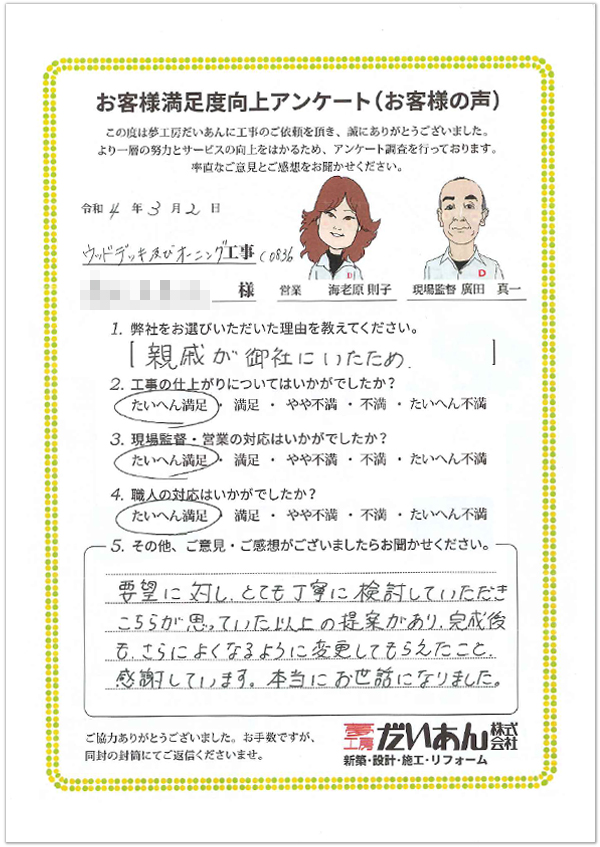 お客様満足度向上アンケート(お客様の声)
この度は夢工房だいあんに工事のご依頼を頂き、誠にありがとうございました。
より一層の努力とサービスの向上をはかるため、アンケート調査を行っております。
率直なご意見とご感想をお聞かせください。
令和 4 年 3 月 2 日
ウッドデッキ及びオーニング工事 (0836
様
D
D
営業 海老原 則子
現場監督 廣田 真一
1. 弊社をお選びいただいた理由を教えてください。
[ 親戚が御社にいたため. ]
2. 工事の仕上がりについてはいかがでしたか?
たいへん満足 ・ 満足 ・ やや不満 ・ 不満 ・ たいへん不満
3. 現場監督・営業の対応はいかがでしたか?
たいへん満足 ・ 満足 ・ やや不満 ・ 不満 ・ たいへん不満
4. 職人の対応はいかがでしたか?
たいへん満足 ・ 満足 ・ やや不満 ・ 不満 ・ たいへん不満
5. その他、ご意見・ご感想がございましたらお聞かせください。
要望に対し、とても丁寧に検討していただき
こちらが思っていた以上の提案があり、完成後
も、さらによくなるように変更してもらえたこと、
感謝しています。本当にお世話になりました。
ご協力ありがとうございました。お手数ですが、
同封の封筒にてご返信くださいませ。
夢工房 だいあん 株式会社
新築・設計・施工・リフォーム